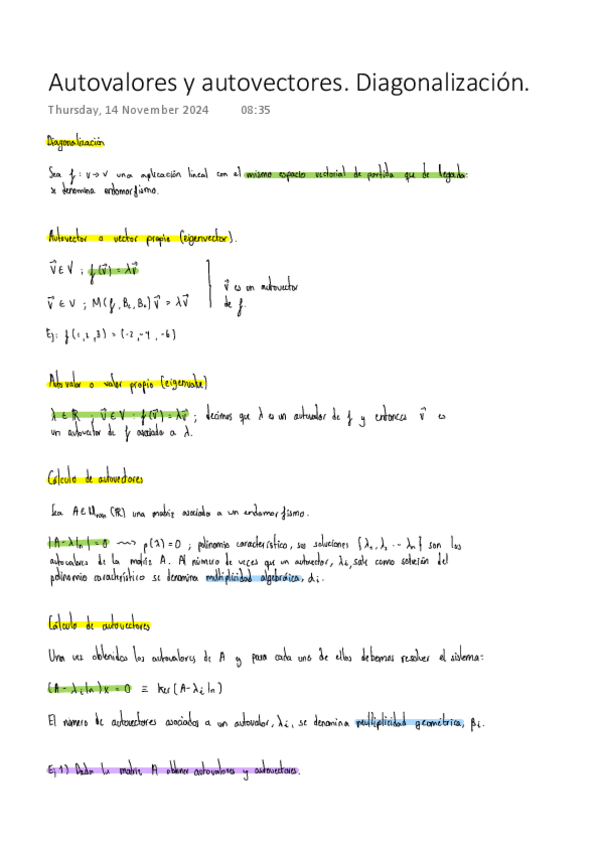 Autovalores y autovectores. Diagonalización.
Thursday, 14 November 2024 08:35
Diagonalización
Sea f: V→V una aplicación lineal con el mismo espacio vectorial de partida que de llegada:
se denomina endomorfismo.
Autovector o vector propio (eigenvector).
v⃗ ∈ V ; f(v⃗) = λv⃗
v⃗ ∈ V ; M(f, Bc, Bc) v⃗ = λv⃗
v⃗ es un autovector
de f.
Ej: f(1,2,3) = (-2,-4,-6)
Autovalor o valor propio (eigenvalue)
λ ∈ ℝ ; v⃗ ∈ V : f(v⃗) = λv⃗ ; decimos que λ es un autovalor de f y entonces v⃗ es
un autovector de f asociado a λ.
Cálculo de autovectores
Sea A ∈ Mnxn (ℝ) una matriz asociada a un endomorfismo.
|A - λIn| = 0 ⟿ p(λ) = 0 ; polinomio característico, sus soluciones {λ1, λ2 ... λn} son los
autovalores de la matriz A. Al número de veces que un autovector, λi, sale como solución del
polinomio característico se denomina multiplicidad algebráica, αi.
Cálculo de autovectores
Una vez obtenidos los autovalores de A y para cada uno de ellos debemos resolver el sistema:
(A - λi In) x = 0 ≡ Ker (A - λi In)
El número de autovectores asociados a un autovalor, λi, se denomina multiplicidad geométrica, βi.
Ej 1) Dada la matriz A obtener autovalores y autovectores.